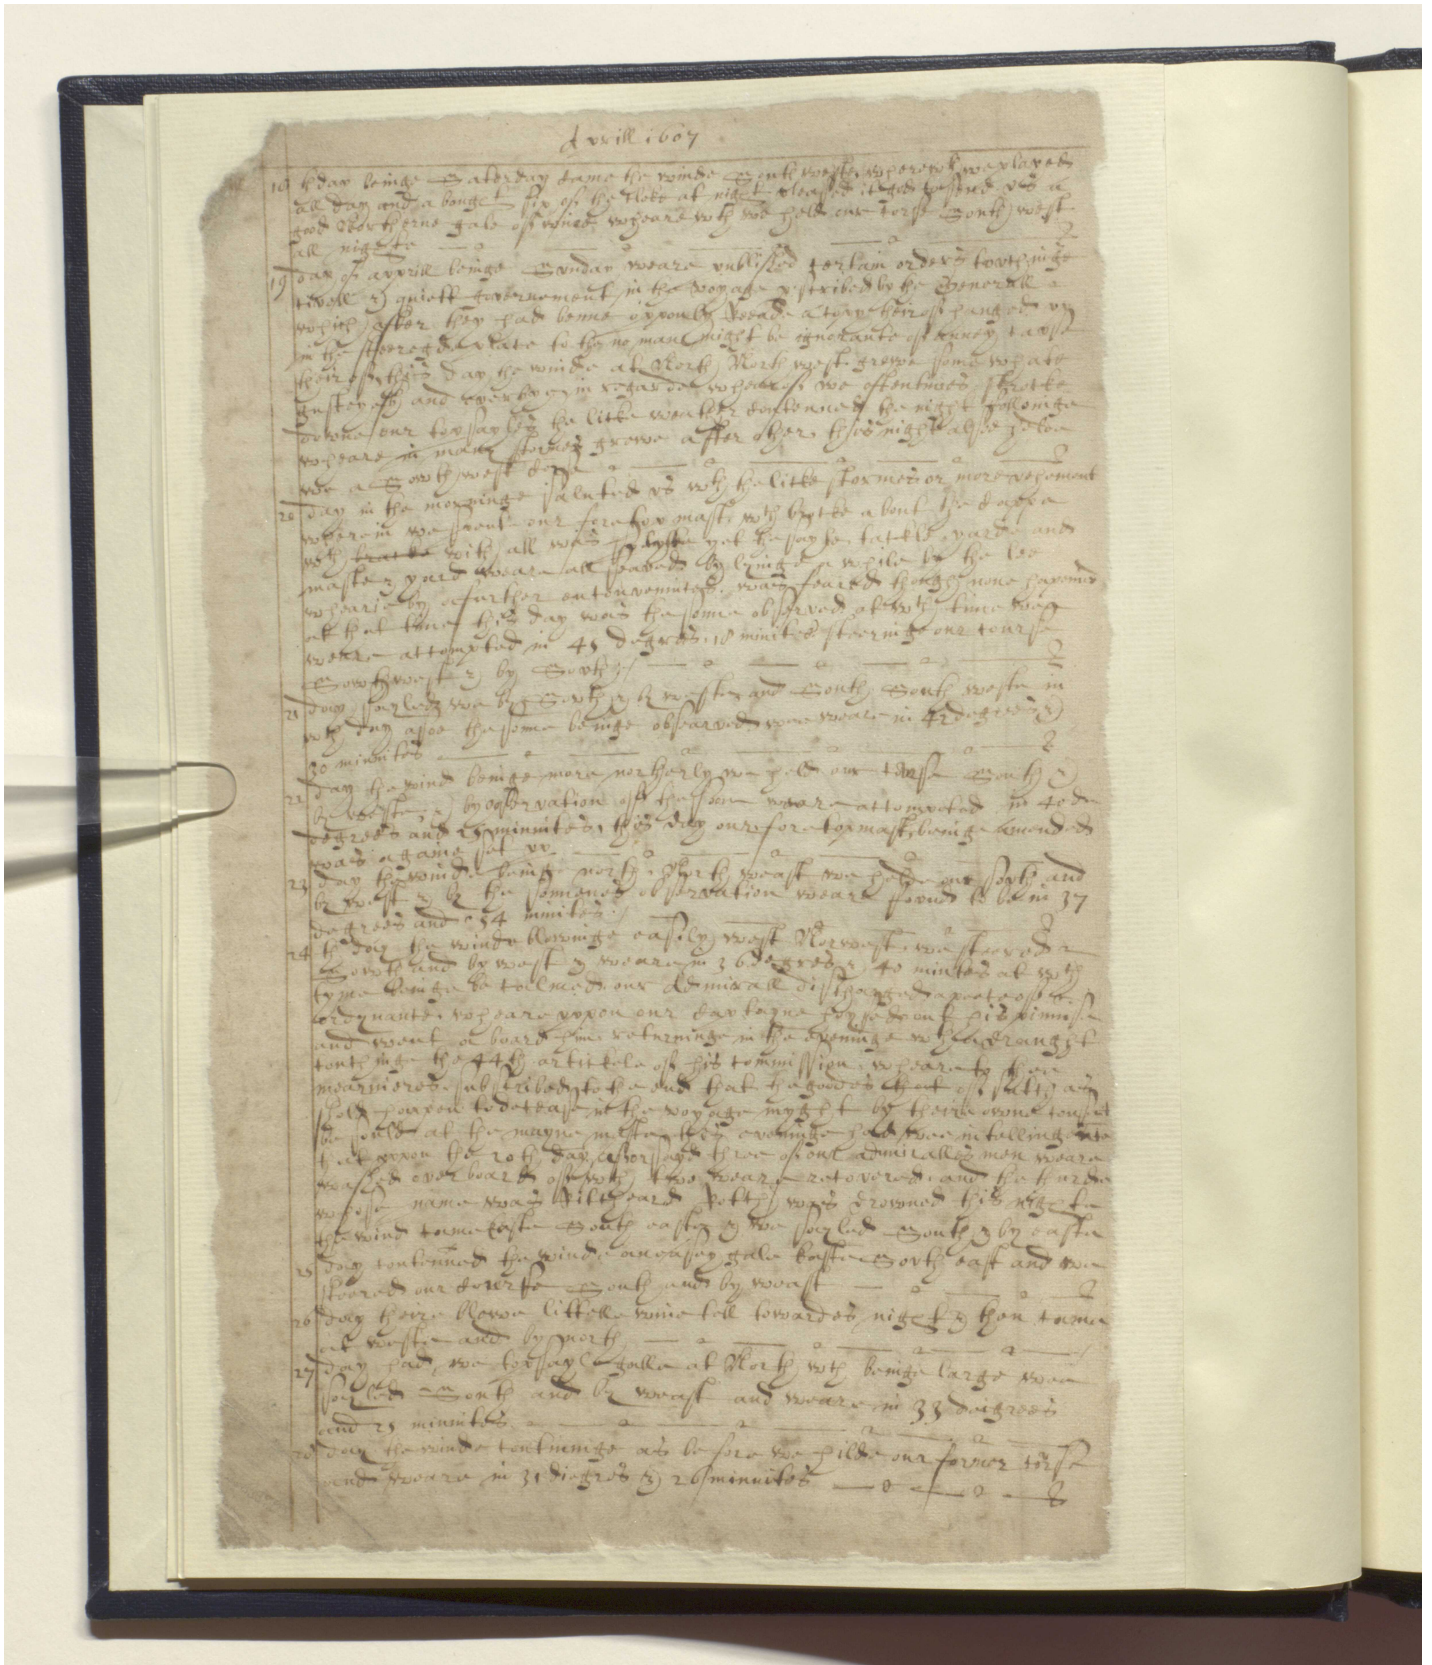 Aprill 1607
18 th day beinge Saterday came the winde South weste, wherewth we playes
all day and abought six of the Cloke at night pleased it god to send vs a
good Northerne gale of winde, wheare wth we held our corse South west
all nighte
19 day of Aprill beinge Sunday weare publissed certain orders towchinge
civell & quiett governement in the voyage prescribed by the Generall
which after they had benne oppenly Reade a coppy theirof hanged vp
in the steeredge place to the no man might be ignorante of anney cawse
theirof, this day the winde at North North west grewe some whate
gustey and overblowen in regarde whearof we oftentimes strocke
downe our topsayles, the licke weather contenned the night followinge
wheare in many stormes grewe after other, this night also helde
we a Sowth west corse
20 day in the morninge saluted vs wth the licke stormes or more vehement
wherein we spente our foretop maste wch broke about the cappe
wth with all was yet the sayle tackle yarde and
maste & yard weare all saved by lyinge a while by the lee
whearin by a further enconvenience was feared though none happened
at that time this day was the sonne observed at wch time wee
weare attempted in 45 degrees 18 minites steeringe our course
Sowthwest & by Sowth
21 day sayled we by Sowth & by weste and South South weste in
wch day also the sonne beinge observed wee weare in 42 degrees &
30 minuites
22 day the wind beinge more northerly we held our corse South &
by weste & by observation of the sonne weare attempted in 40 de
degrees and 15 minnites, this day our foretopmast beinge amended
was againe set vp
23 day the winde beinge north North weast we helde our south and
by west & by the sonnes observation weare found to be in 37
degrees and 54 minites
24 th day the winde blowinge easily west Norwest we steered
Sowth and by west & weare in 36 degres & 40 minites at wch
tyme beinge be calmed our Admirall discharged a peece of
ordynance, wheare vppon our Captayne hoysed out his pinnisse
and went a board him returninge in the eveninge wth a draught
touchinge the 44th artickele of his commission wheareto then
mearineres subscribed to the end that the goodes that of such as
shold happen to decease in the voyage myght by their owne consent
be sould at the mayne maste, this eveninge had wee intelligence
that vppon the 20th day afforsayd three of our admiralles men weare
washed over board of wch two weare recovered, and the thirde
whose name was was drowned this nighte
the wind came Easte South easte & we sayled South & by easte
25 day contenned the winde an easey gale Easte Sowth east and we
steered our course South and by weast
26 day theire blewe littelle winde till towardes night & then came
at weste and by north
27 day had we topsayle galle at North wch beinge large wee
sayled South and by weast and weare in 33 deigrees
and 25 minuites
28 day the winde continnige as before we hilde our former corse
and weare in 31 diegres & 26 minuites